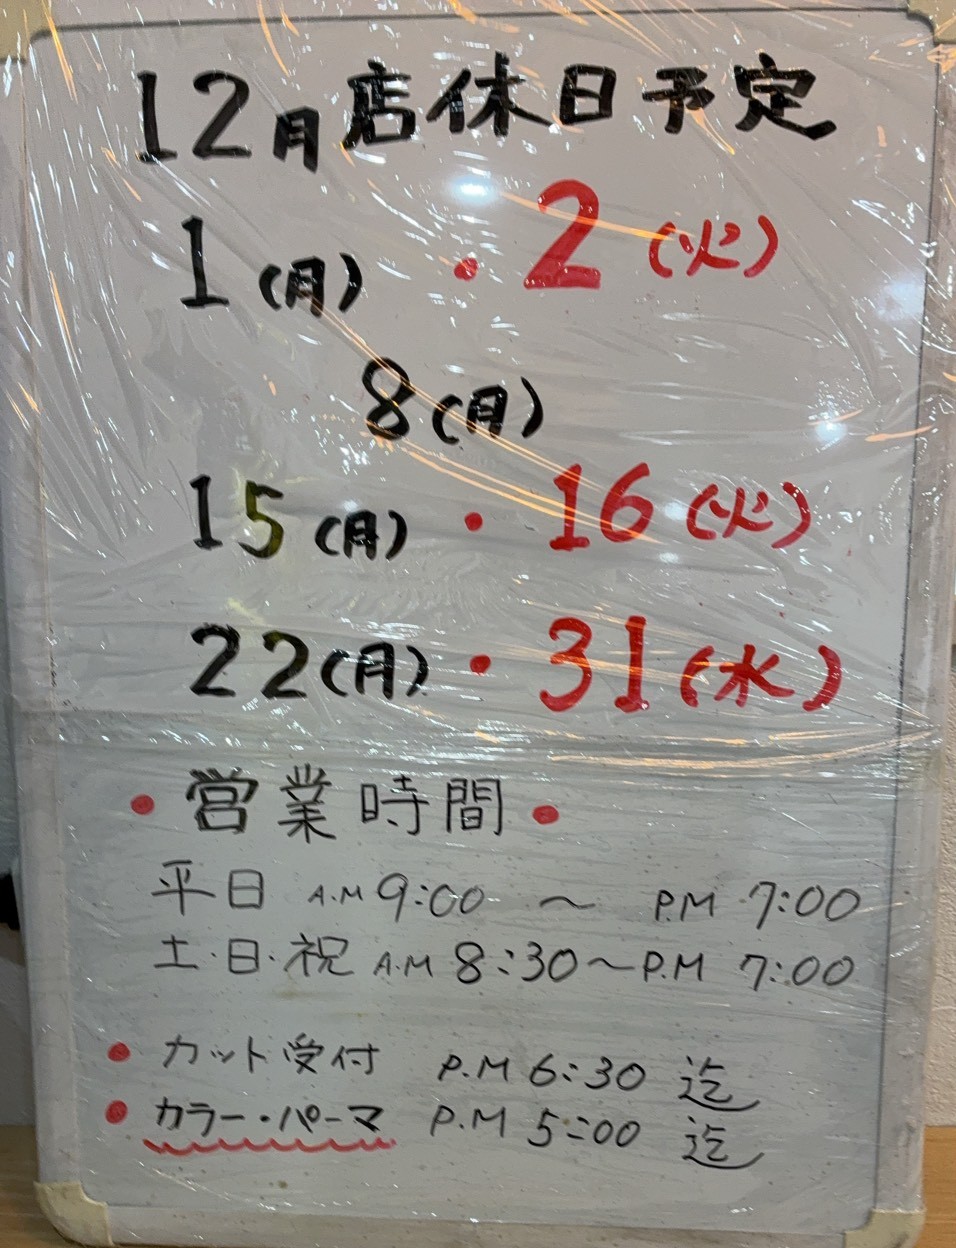 12月店休日予定
1(月)・2(火)
8(月)
15(月)・16(火)
22(月)・31(水)
・営業時間・
平日 A.M 9:00 〜 P.M 7:00
土・日・祝 A.M 8:30〜P.M 7:00
・カット受付 P.M 6:30 迄
・カラー・パーマ P.M 5:00 迄